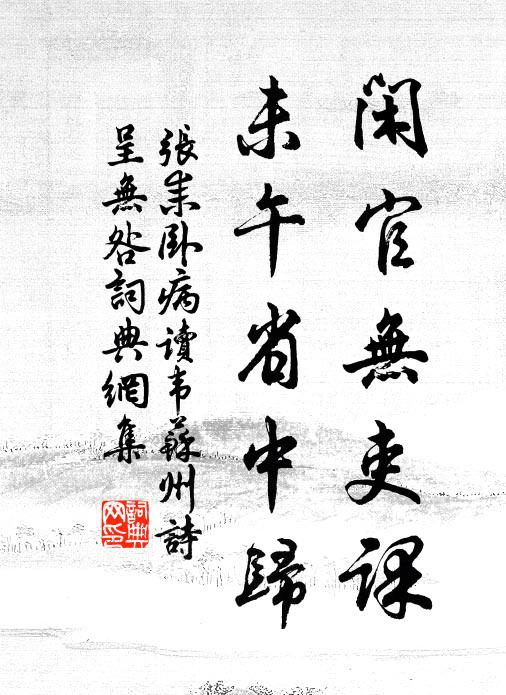 閑官無吏課
未午省中歸
張耒臥病讀韦蘇州詩
呈無咎詞典網集
詞典网印